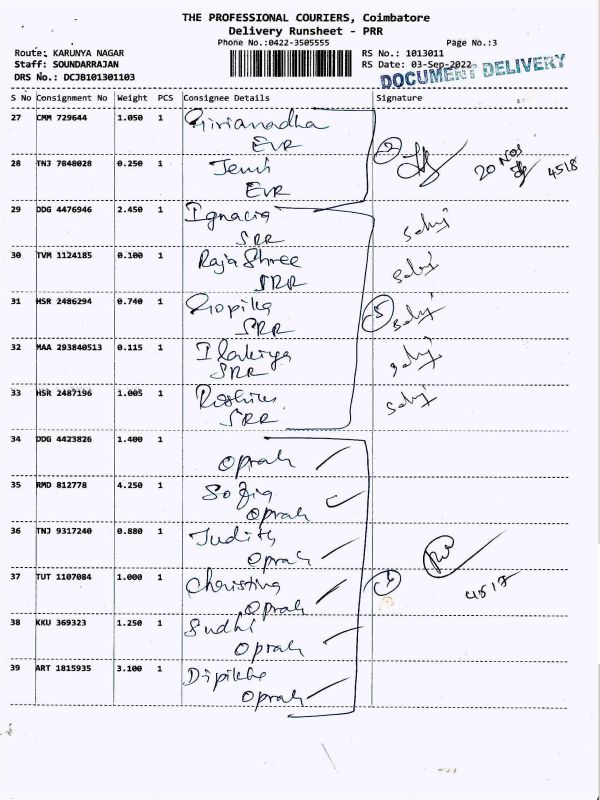 THE PROFESSIONAL COURIERS, Coimbatore
Delivery Runsheet - PRR
Phone No.:0422-3505555
Page No.:3
Route: KARUNYA NAGAR
RS No.: 1013011
Staff: SOUNDARRAJAN
RS Date: 03-Sep-2022
DRS No.: DCJB101301103
DOCUMENT DELIVERY
S No Consignment No Weight PCS Consignee Details Signature
27 CMM 729644 1.050 1
EVR
28 TNJ 7848028 0.250 1 Jemi
EVR
2
20 Nos 4518
29 DDG 4476946 2.450 1 Ignacia
SRR
30 TVM 1124185 0.100 1 Raja Shree
SRR
31 HSR 2486294 0.740 1 Gopika
SRR
5
32 MAA 293840513 0.115 1 Ilakiya
SRR
33 HSR 2487196 1.005 1
SRR
34 DDG 4423826 1.400 1
Oprah
35 RMD 812778 4.250 1 Sofia
Oprah
36 TNJ 9317240 0.880 1 Judith
Oprah
37 TUT 1107084 1.000 1 Christina
Oprah
6
4517
38 KKU 369323 1.250 1 Sudhi
Oprah
39 ART 1815935 3.100 1
Oprah